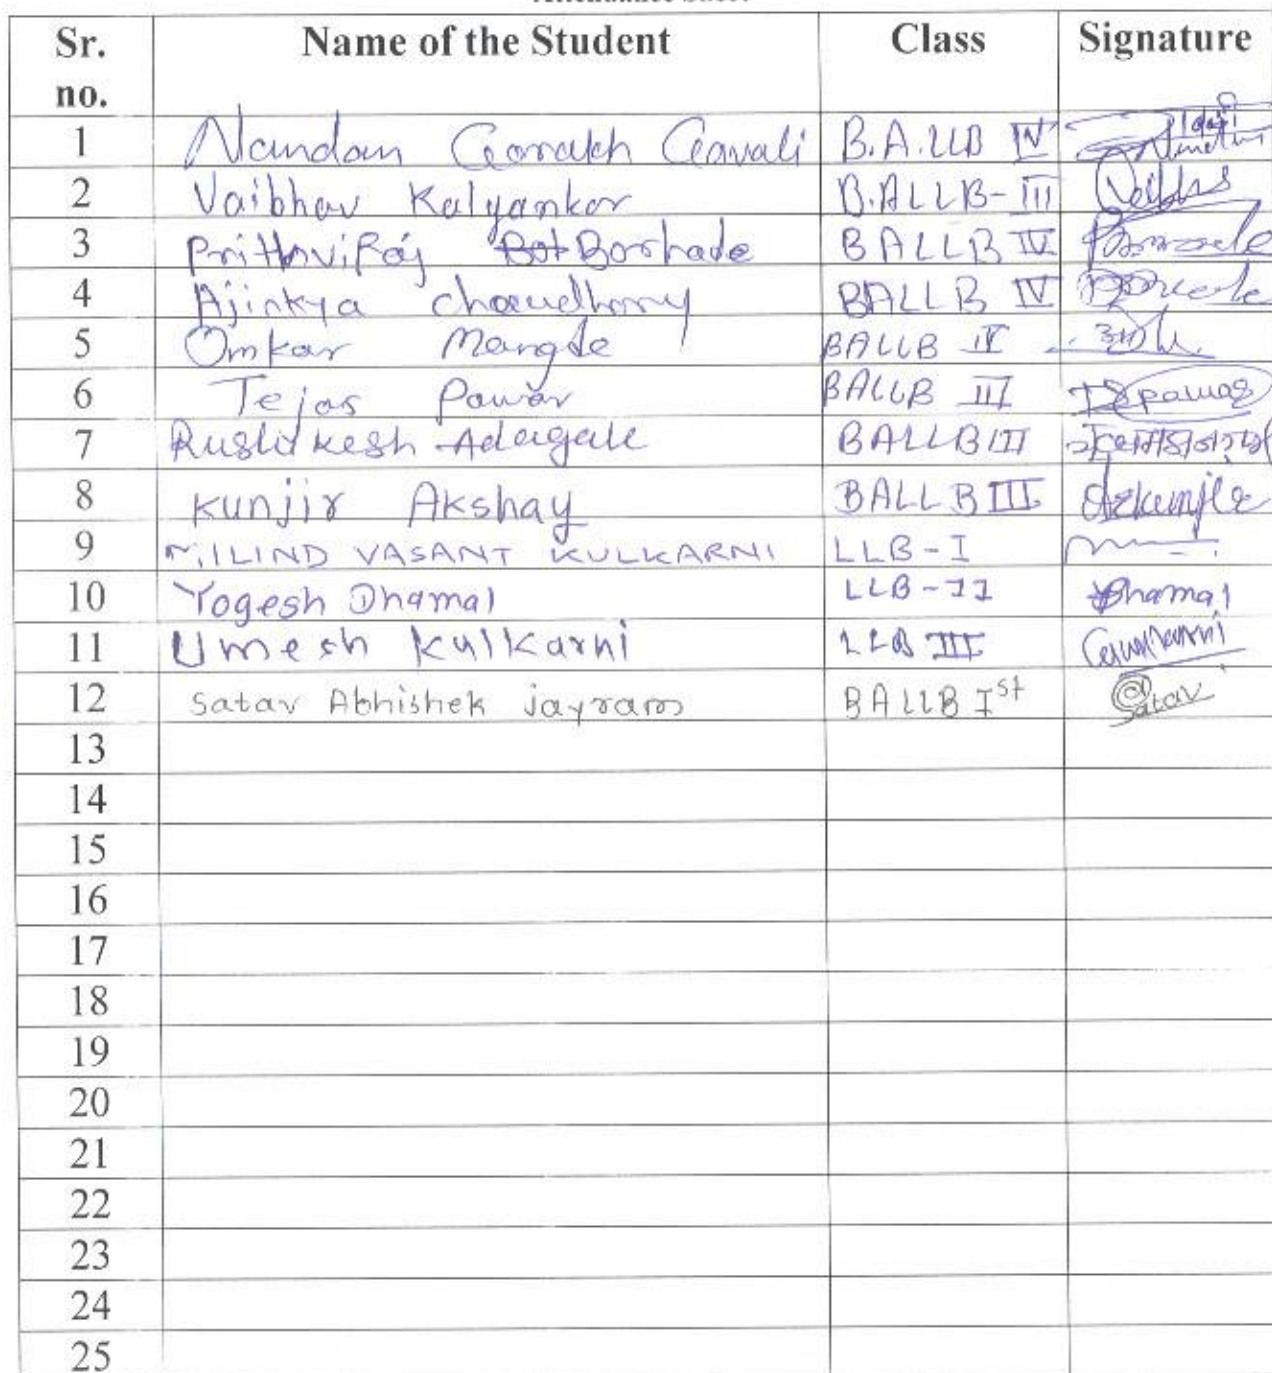 Attendance Sheet
Sr. no. Name of the Student Class Signature
1 Nandan Gorakh Gavali B.A.LLB IV
2 Vaibhav Kalyankar B.ALLB-III
3 Prithviraj Borhade BALLB IV
4 Ajinkya choudhary BALLB IV
5 Omkar Mangde BALLB IV
6 Tejas Pawar BALLB III TSpawar
7 Rushikesh Adagale BALLB III
8 Kunjir Akshay BALLB III
9 MILIND VASANT KULKARNI LLB-I
10 Yogesh Dhamal LLB-II Dhamal
11 Umesh Kulkarni LLB III
12 Satav Abhishek jayram BALLB Ist Satav
13
14
15
16
17
18
19
20
21
22
23
24
25